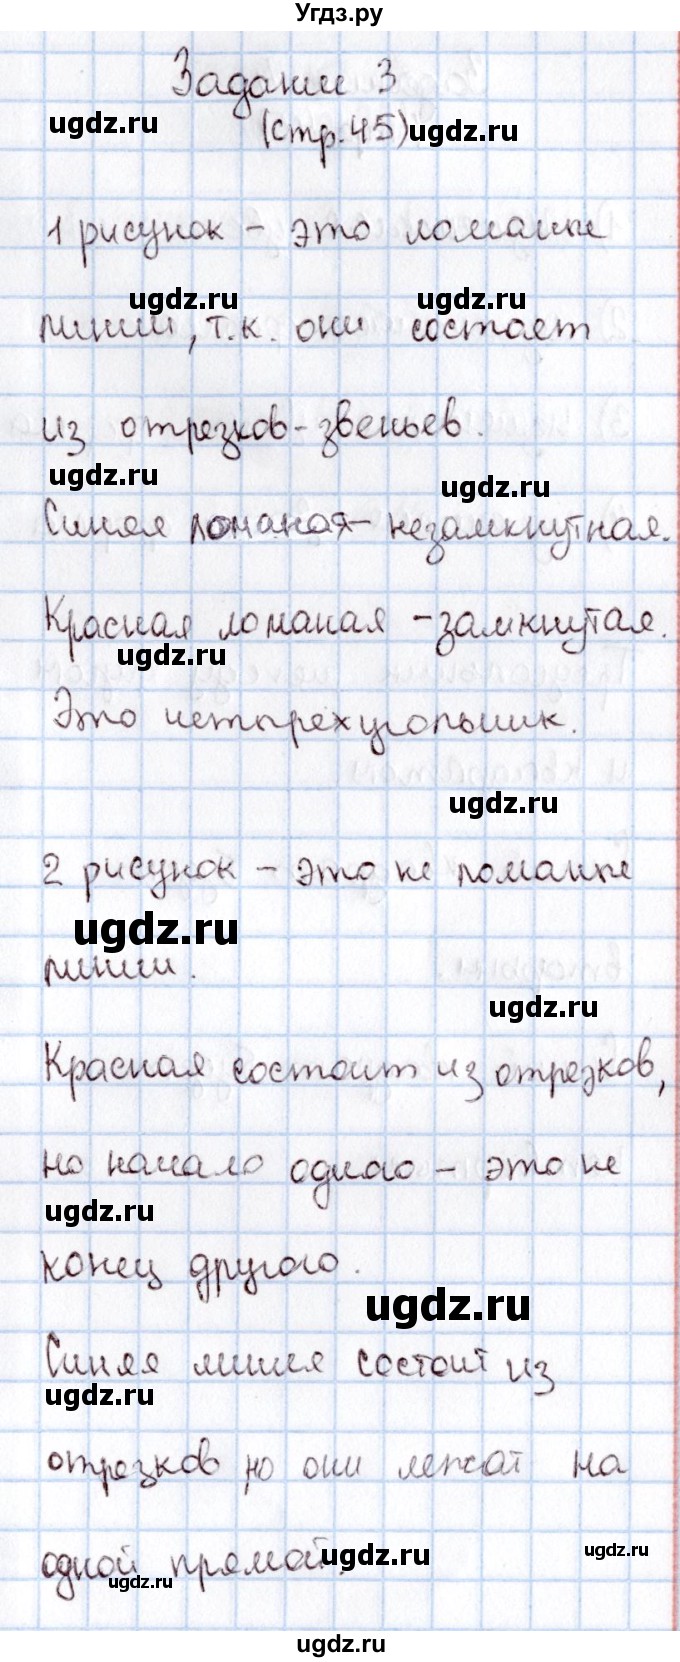 Угдз.ру
Задание 3
ugdz.ru
(стр.45) ugdz.ru
1 рисунок - это ломаные
ugdz.ru ugdz.ru
линии, т.к. они состает
из отрезков-звеньев.
ugdz.ru ugdz.ru
Синяя ломаная - незамкнутная.
Красная ломаная - замкнутая.
ugdz.ru
Это четырехугольник.
ugdz.ru
2 рисунок - это не ломаные
ugdz.ru
линии.
ugdz.ru
Красная состоит из отрезков,
но начало одного - это не
ugdz.ru
конец другого.
ugdz.ru
Синяя линия состоит из
ugdz.ru
отрезков, но они лежат на
одной прямой. ugdz.ru ugdz.ru
ugdz.ru
ugdz.ru